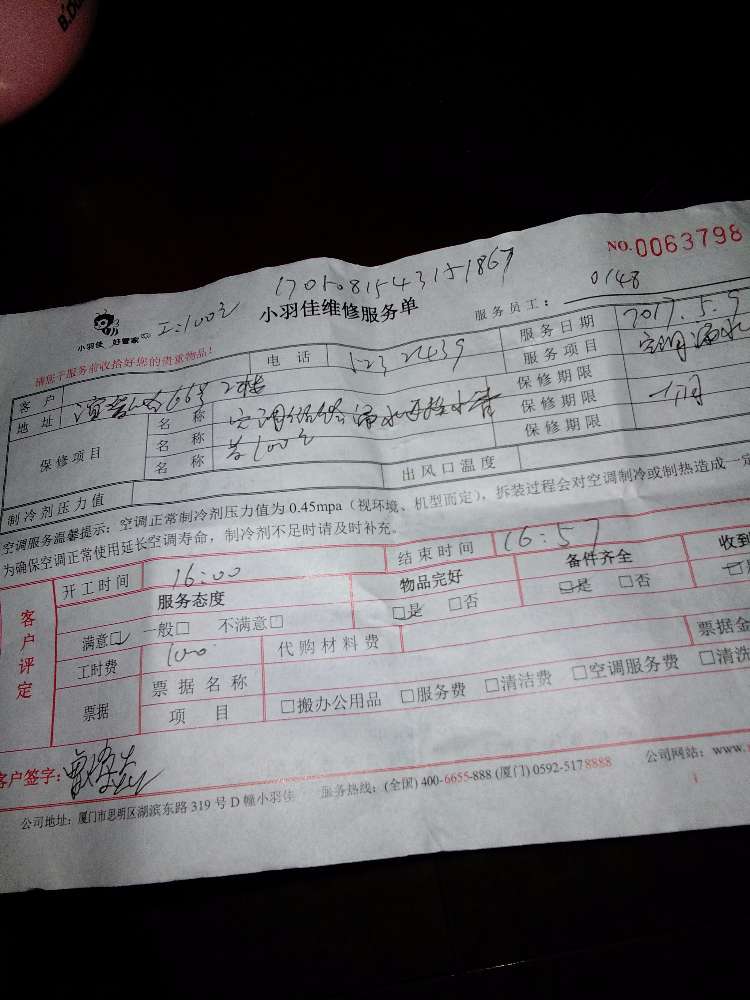 B.Du
NO.0063798
1701081543151867
0148
小羽佳 好管家 工:100元 小羽佳维修服务单 服务员工:
请您于服务前收拾好您的贵重物品!
客户 电话 5232439 服务日期 2017.5.9
地址 66号2楼 服务项目 空调漏水
保修项目 名称 空调 漏水 保修期限
名称 100元 保修期限 一个月
名称 保修期限
制冷剂压力值 出风口温度
空调服务温馨提示:空调正常制冷剂压力值为0.45mpa(视环境、机型而定),拆装过程会对空调制冷或制热造成一定
为确保空调正常使用延长空调寿命,制冷剂不足时请及时补充。
客户评定 开工时间 16:00 结束时间 16:57
服务态度 物品完好 备件齐全 收到
满意☑ 一般□ 不满意□ ☑是 □否 ☑是 □否
工时费 100 代购材料费 票据金
票据 票据名称
项目 □搬办公用品 □服务费 □清洁费 □空调服务费 □清洗
客户签字:
公司地址:厦门市思明区湖滨东路319号D幢小羽佳 服务热线:(全国)400-6655-888 (厦门)0592-5178888 公司网站:www.